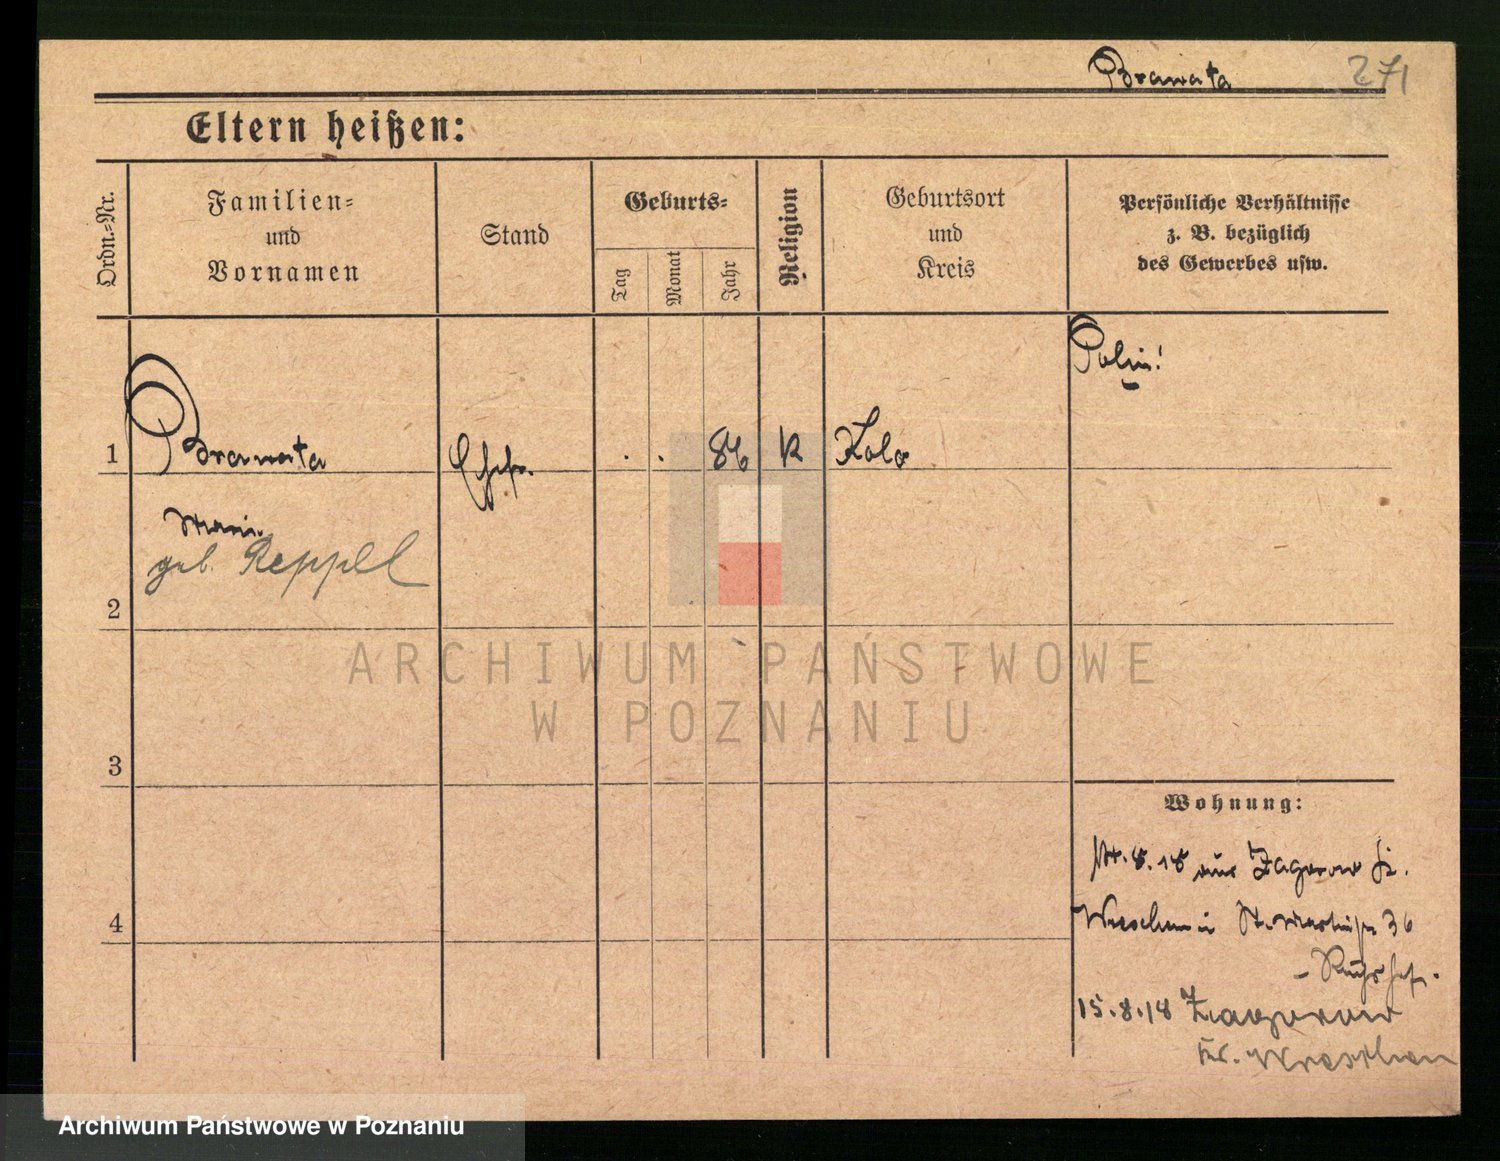 Branata 271
Eltern heißen:
Ordn.=Nr.
Familien=
und
Vornamen
Stand
Geburts=
Tag
Monat
Jahr
Religion
Geburtsort
und
Kreis
Persönliche Verhältnisse
z. B. bezüglich
des Gewerbes usw.
Polin!
1 Branata Ehefr. . . 86 K Kolo
Maria
geb. Reppel
2
ARCHIWUM PAŃSTWOWE
W POZNANIU
3
Wohnung:
8.18 aus Zagorow
4 Wreschen 36
15.8.18 Zagorow
Kr. Wreschen
Archiwum Państwowe w Poznaniu